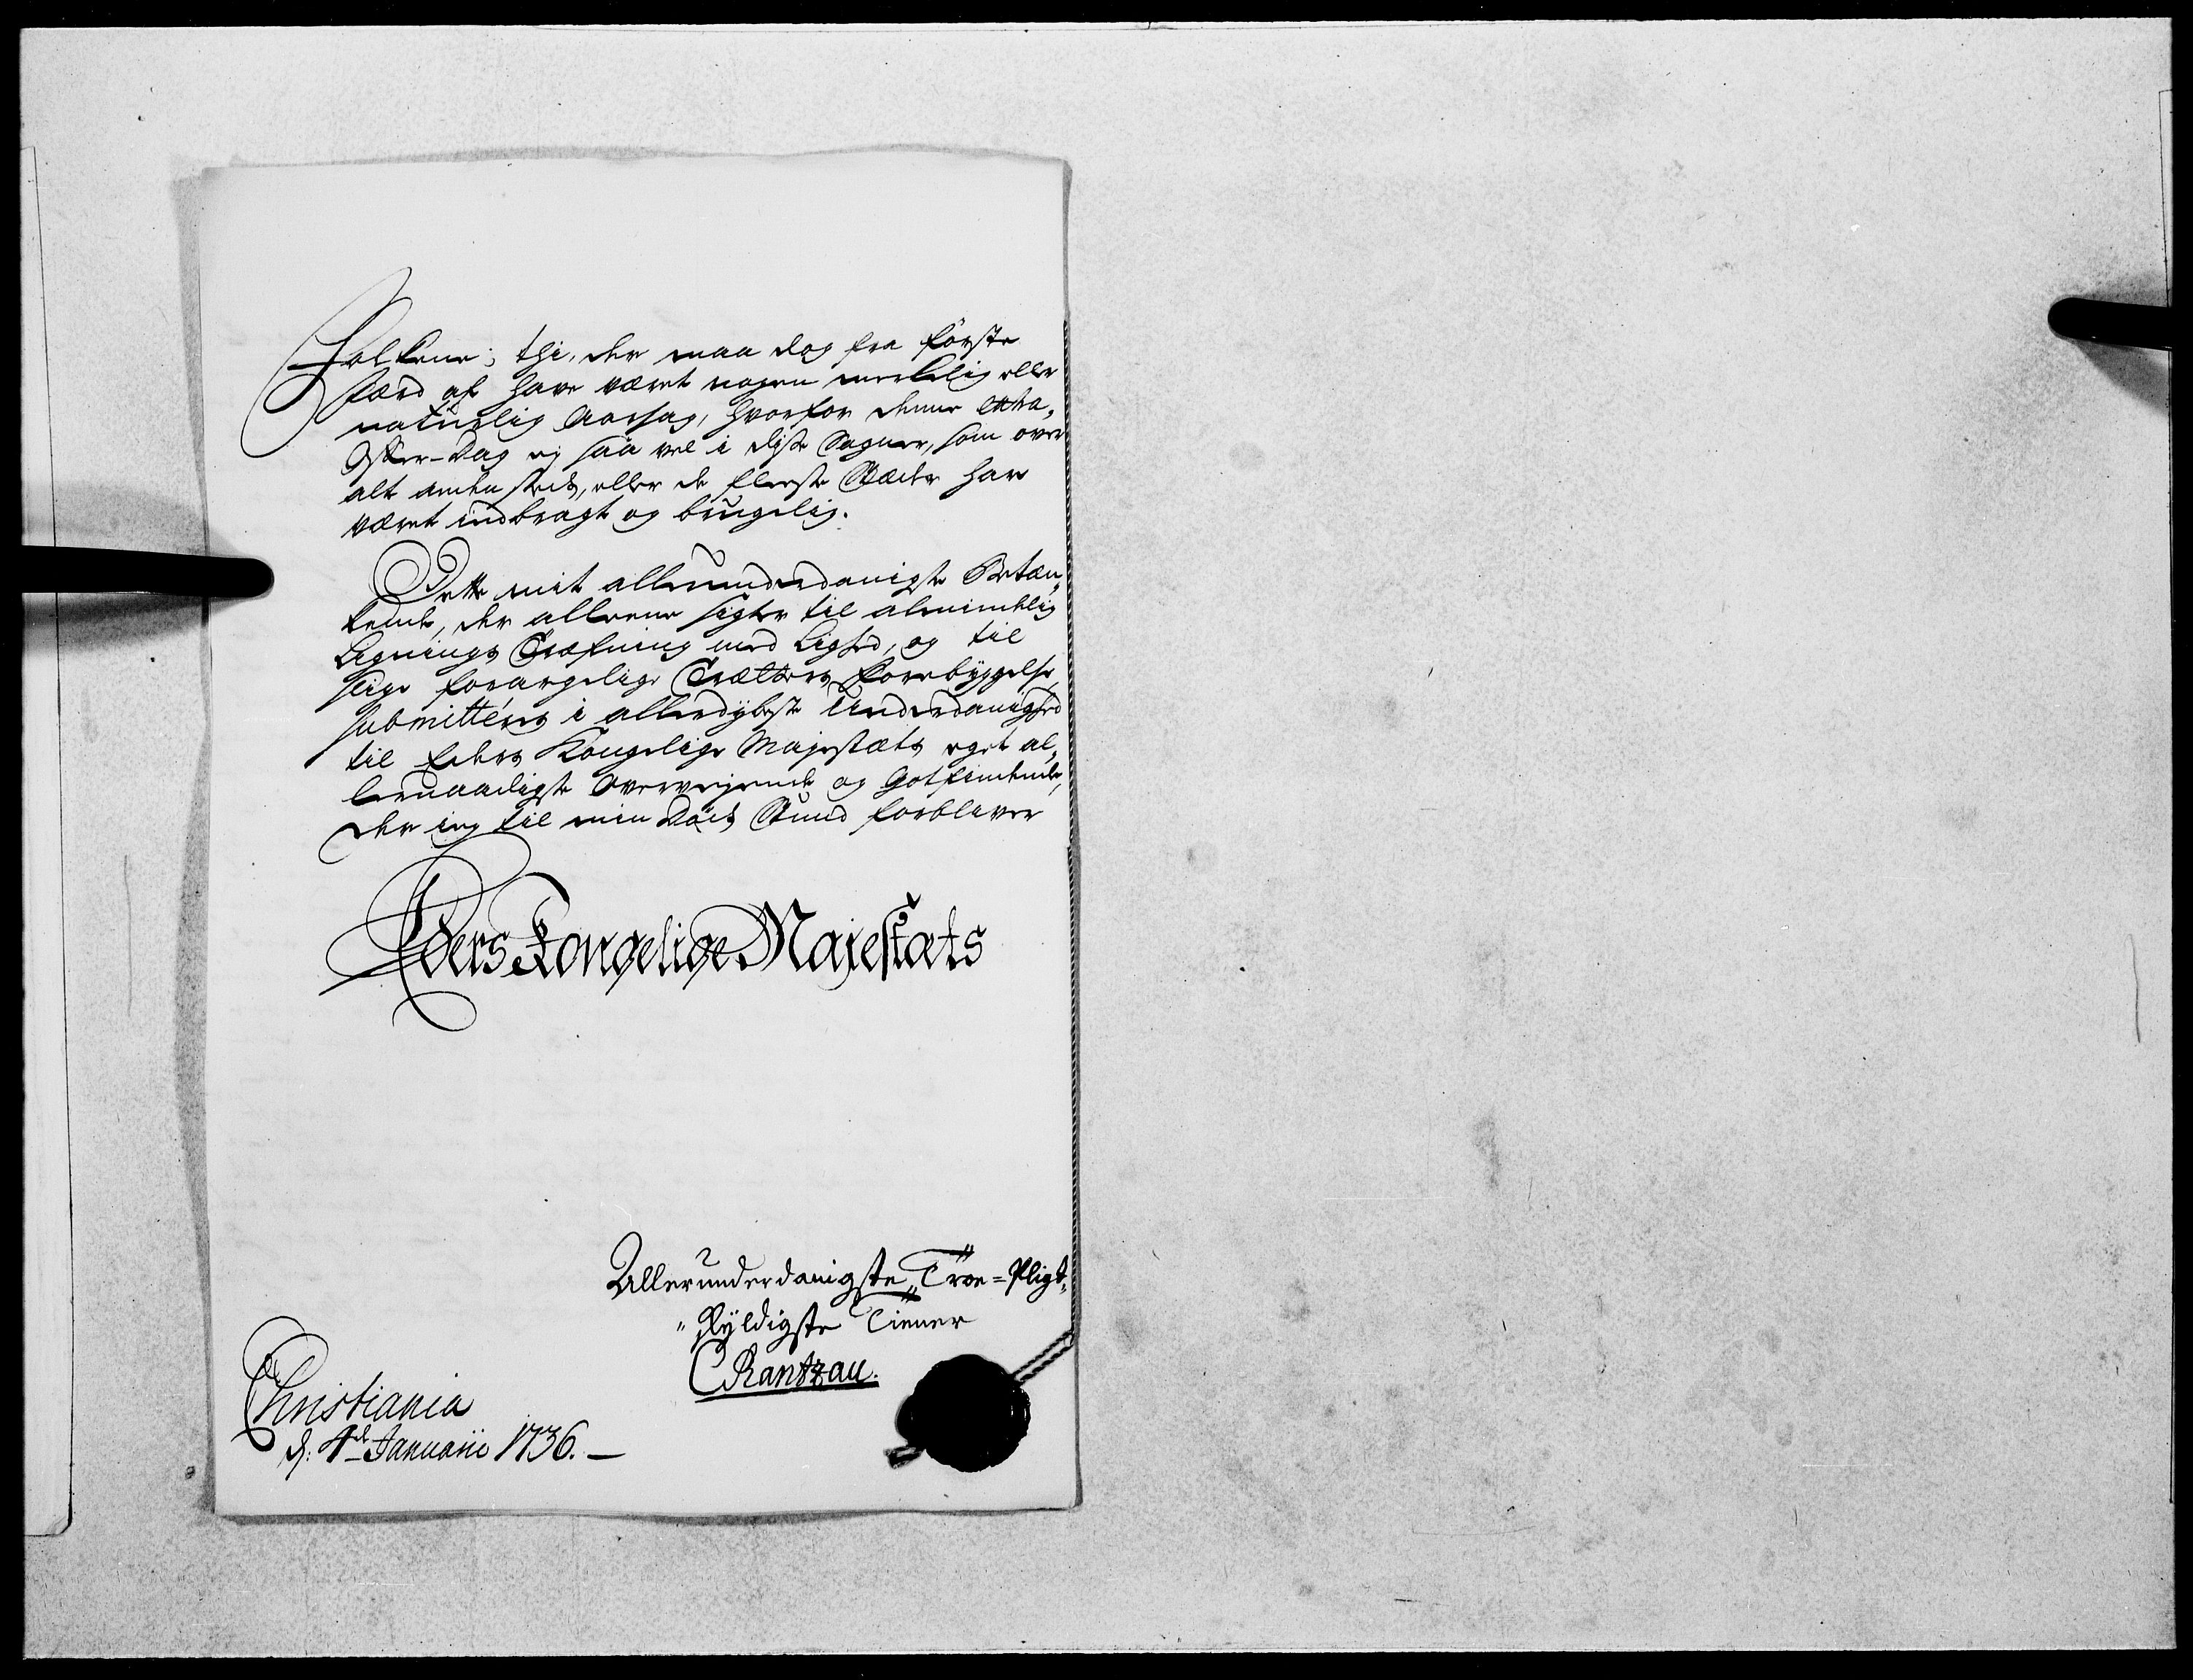 Folkene; thi, der maa dog fra første
færd af have været nogen merkelig eller
naturlig Aarsag, hvorfor denne extra-
Offer-Dag ej saa vel i disse Sogner, som over
alt anden steds, eller de fleeste Stæder har
været indbragt og brugelig.
Dette mit allerunderdanigste Betæn-
kende, der alleene sigter til almindelig
Lignings Træfning med Lighed, og til
slige forargelige Trætters Forebyggelse,
submitteres i allerdybeste Underdanighed
til Eders Kongelige Majestæts eget al-
lernaadigste Overvejende og Gotfindende,
der jeg til min Døds Stund forbliver
Eders Kongelige Majestæts
Allerunderdanigste Troe-Pligt-
skyldigste Tiener
C Rantzau.
Christiania
d: 4de Januarii 1736.